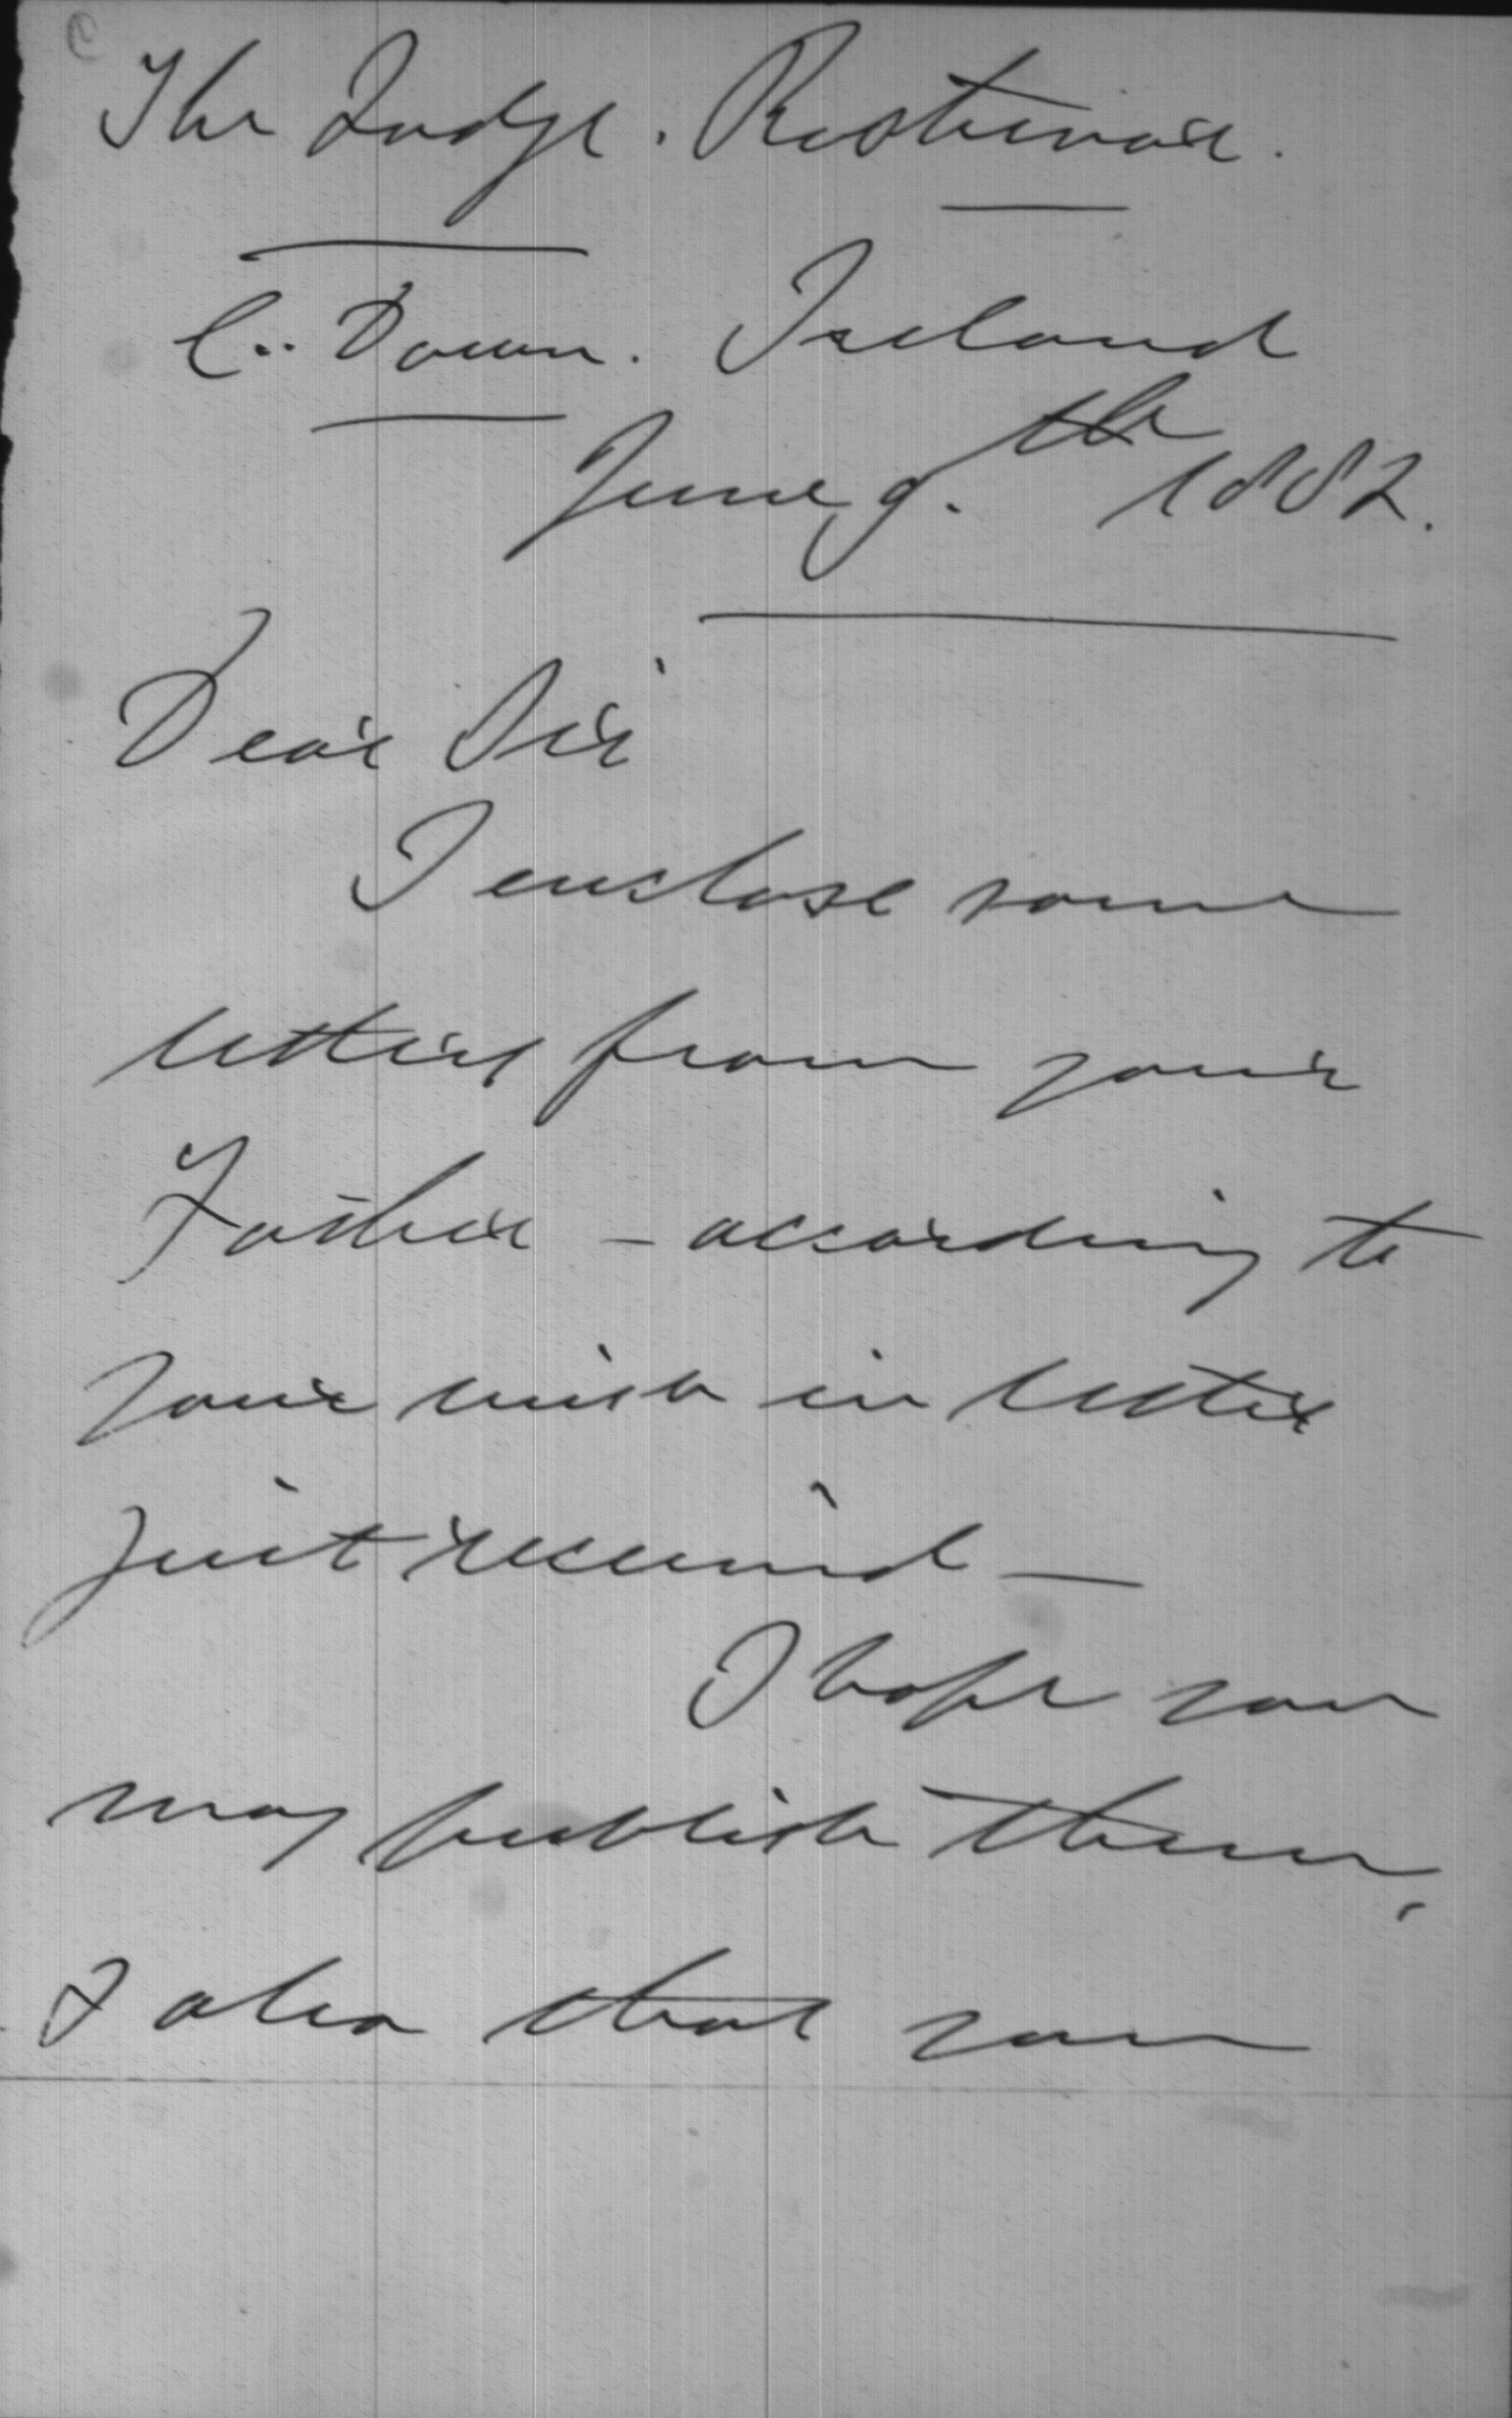 The Lodge. Rostrevor.
Co. Down. Ireland
June 9.th 1882.
Dear Sir
I enclose some
letters from your
Father - according to
your wish in letter
just received —
I hope you
may publish them,
& also that you